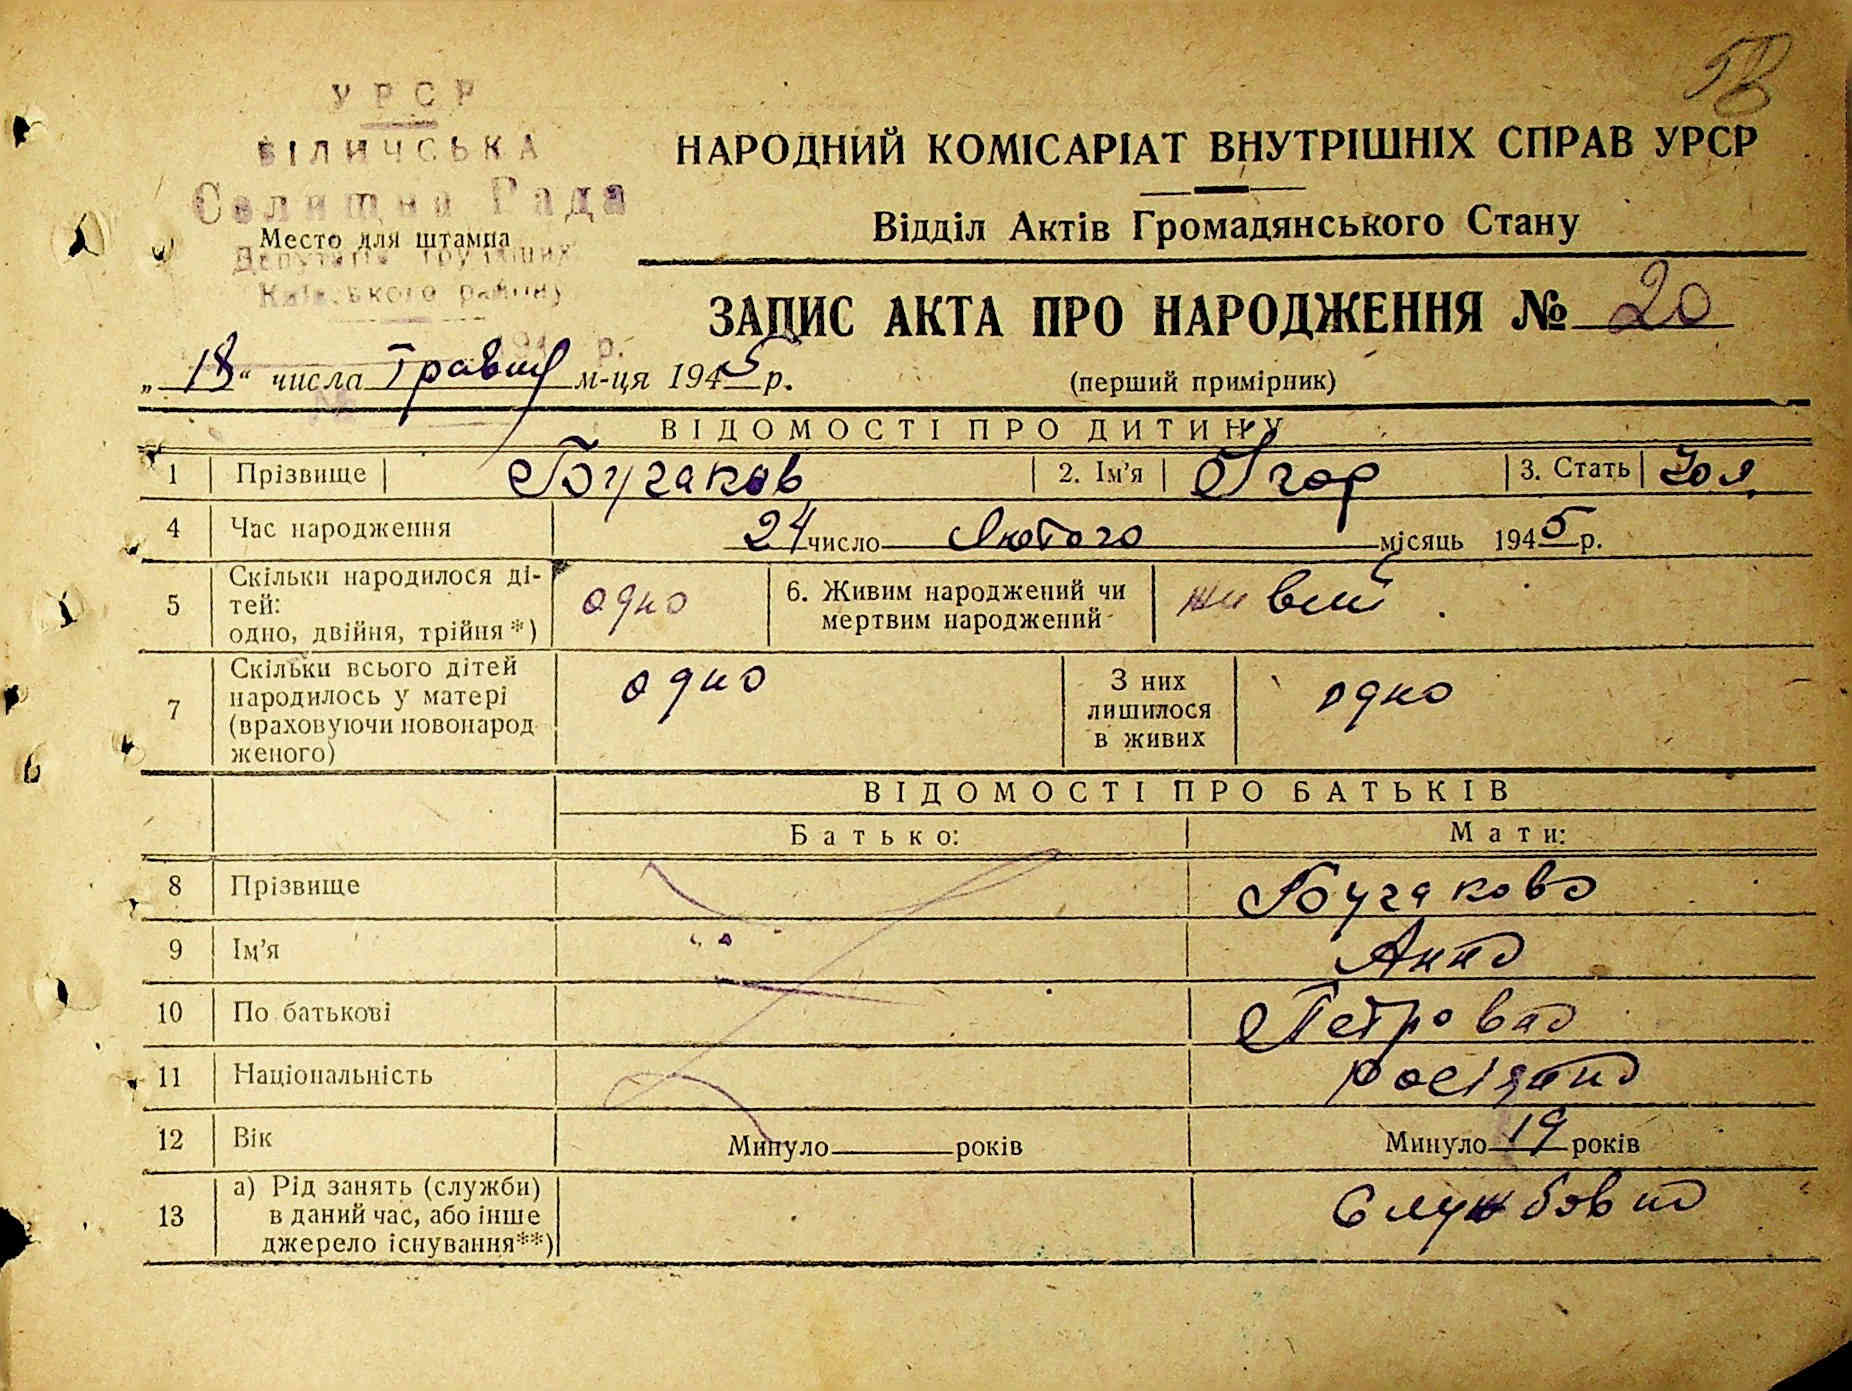 58
УРСР
БІЛИЧСЬКА
Селищна Рада
Место для штампа
Депутатів трудящих
Київського району
194 р.
№
НАРОДНИЙ КОМІСАРІАТ ВНУТРІШНІХ СПРАВ УРСР
Відділ Актів Громадянського Стану
ЗАПИС АКТА ПРО НАРОДЖЕННЯ № 20
„18“ числа Травня м-ця 1945 р.
(перший примірник)
ВІДОМОСТІ ПРО ДИТИНУ
1 Прізвище Бугаков 2. Ім'я Ігор 3. Стать чол.
4 Час народження 24 число Лютого місяць 1945 р.
5 Скільки народилося ді-
тей:
одно, двійня, трійня*)
одно
6. Живим народжений чи
мертвим народжений
живий
7 Скільки всього дітей
народилось у матері
(враховуючи новонарод
женого)
одно
З них
лишилося
в живих
одно
ВІДОМОСТІ ПРО БАТЬКІВ
Батько: Мати:
8 Прізвище Бугакова
9 Ім'я Анна
10 По батькові Петровна
11 Національність росіянка
12 Вік Минуло років Минуло 19 років
13 а) Рід занять (служби)
в даний час, або інше
джерело існування**)
Службовка